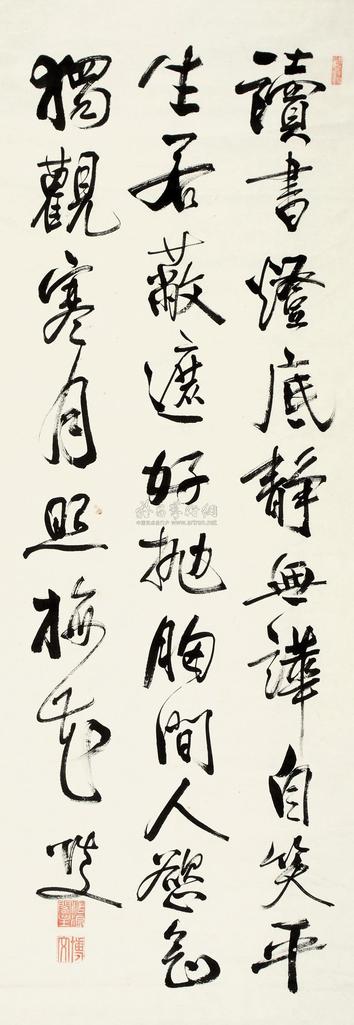 讀書燈底靜無譁自笑平
生若蔽遮好拋胸間人慾
獨觀寒月照梅花
博文
www.artron.net